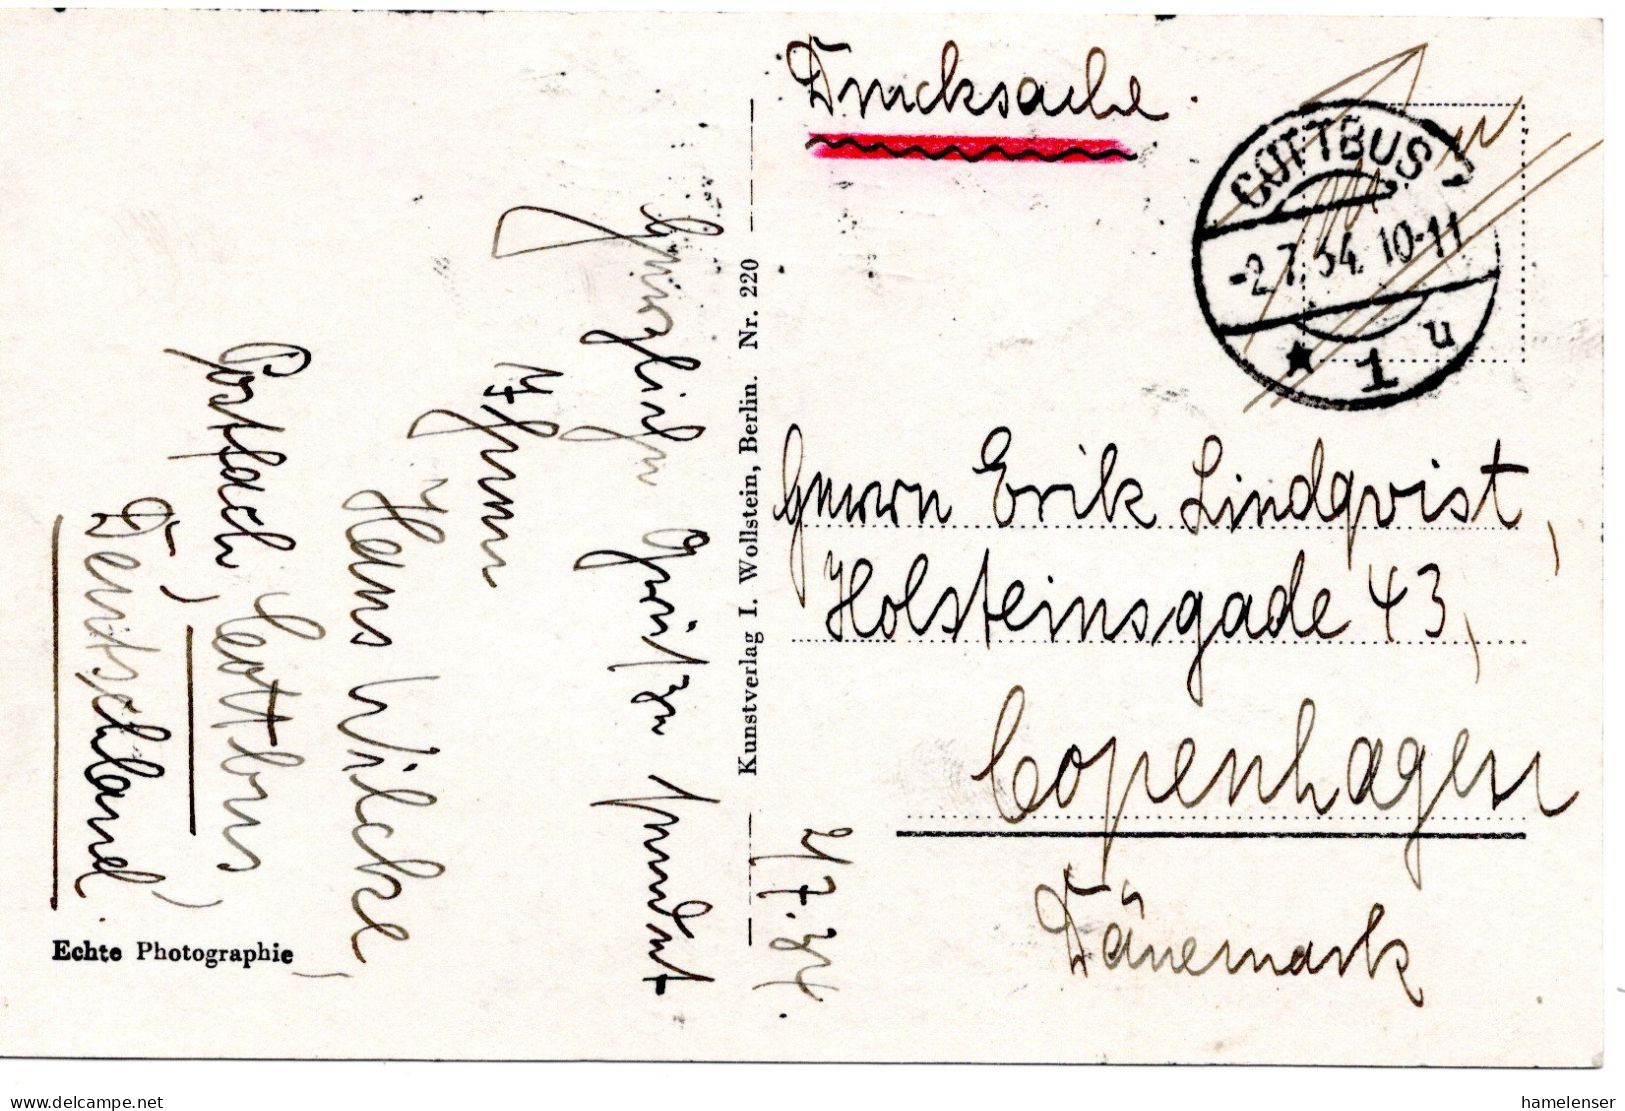 Drucksache.
COTTBUS
-2.7.34. 10-11
* 1 u
Herzlichen Grüße sendet
Ihnen
Hans Wilcke,
Postfach, Cottbus,
Deutschland.
Echte Photographie
Kunstverlag I. Wollstein, Berlin. Nr. 220
2/7.34.
Herrn Erik Lindqvist,
Holsteinsgade 43,
Copenhagen
Dänemark
DELCAMPE.NET
hamelenser